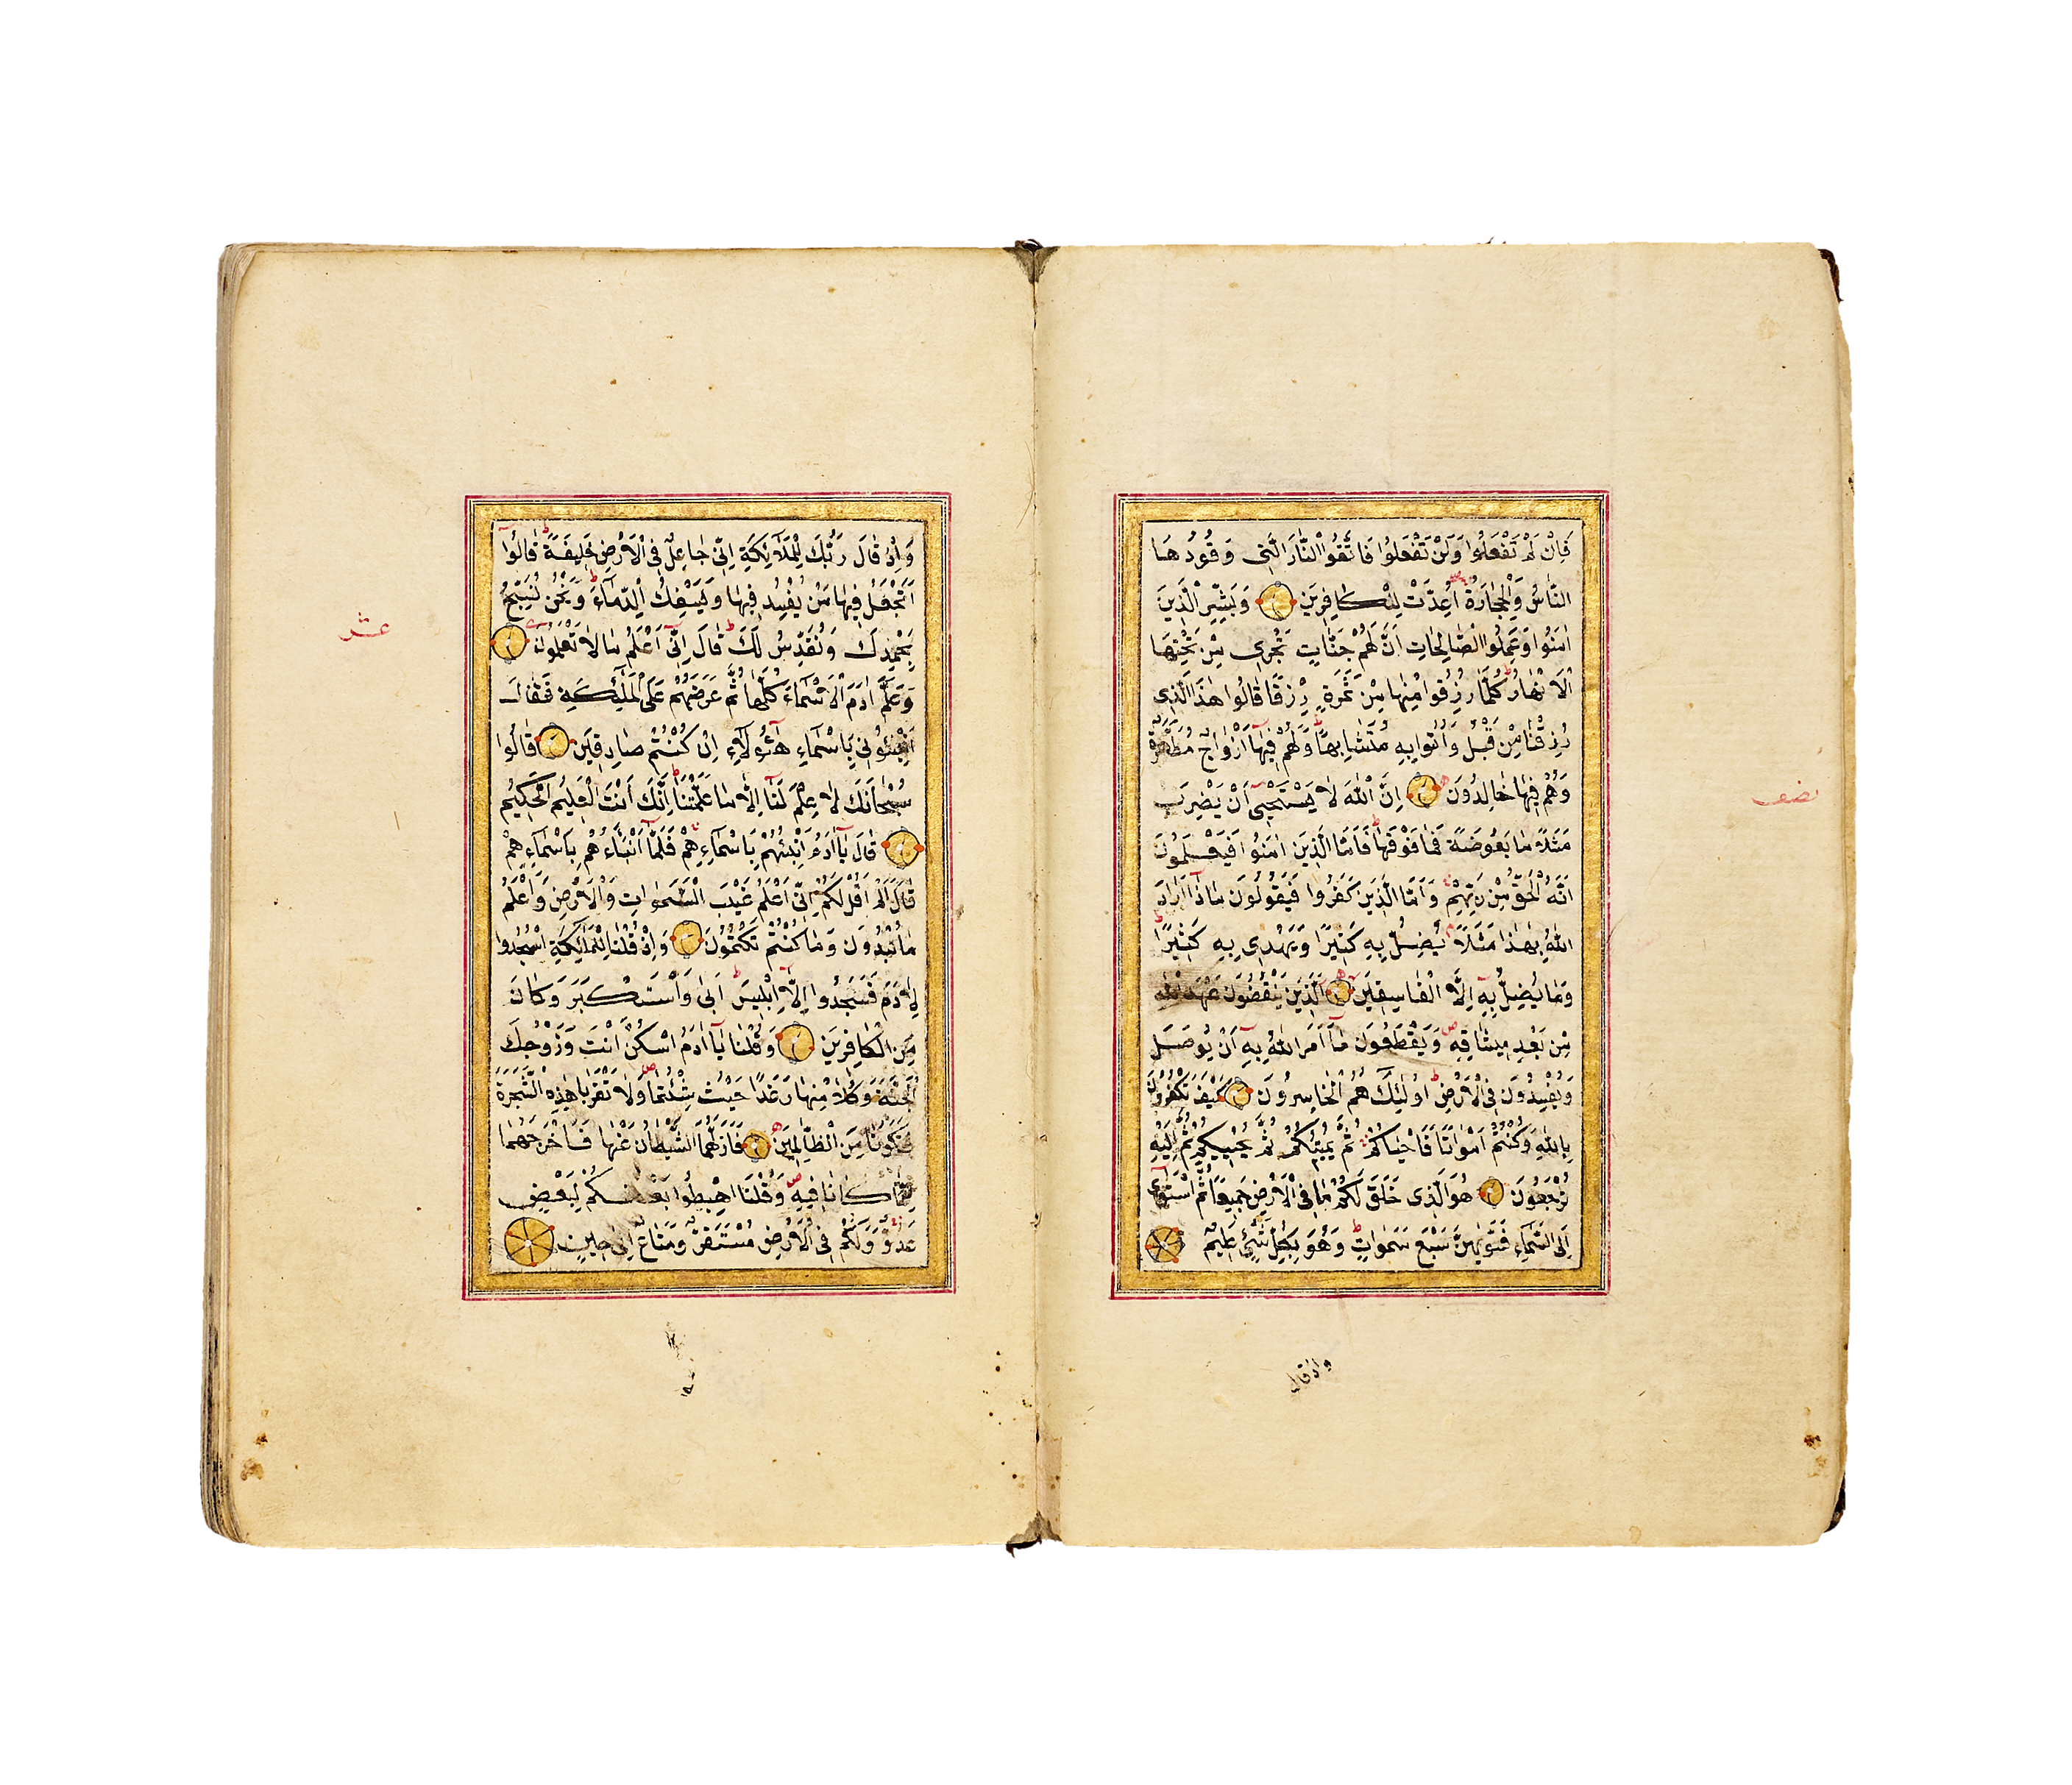 فَاِنْ لَمْ تَفْعَلُوا وَلَنْ تَفْعَلُوا فَاتَّقُوا النَّارَ الَّتِى وَقُودُهَا
النَّاسُ وَالْحِجَارَةُ اُعِدَّتْ لِلْكَافِرِينَ وَبَشِّرِ الَّذِينَ
اٰمَنُوا وَعَمِلُوا الصَّالِحَاتِ اَنَّ لَهُمْ جَنَّاتٍ تَجْرِى مِنْ تَحْتِهَا
الْاَنْهَارُ كُلَّمَا رُزِقُوا مِنْهَا مِنْ ثَمَرَةٍ رِزْقًا قَالُوا هٰذَا الَّذِى
رُزِقْنَا مِنْ قَبْلُ وَاُتُوا بِهِ مُتَشَابِهًا وَلَهُمْ فِيهَا اَزْوَاجٌ مُطَهَّرَةٌ
وَهُمْ فِيهَا خَالِدُونَ اِنَّ اللّٰهَ لَا يَسْتَحْيِى اَنْ يَضْرِبَ
مَثَلًا مَا بَعُوضَةً فَمَا فَوْقَهَا فَاَمَّا الَّذِينَ اٰمَنُوا فَيَعْلَمُونَ
اَنَّهُ الْحَقُّ مِنْ رَبِّهِمْ وَاَمَّا الَّذِينَ كَفَرُوا فَيَقُولُونَ مَاذَا اَرَادَ
اللّٰهُ بِهٰذَا مَثَلًا يُضِلُّ بِهِ كَثِيرًا وَيَهْدِى بِهِ كَثِيرًا
وَمَا يُضِلُّ بِهِ اِلَّا الْفَاسِقِينَ الَّذِينَ يَنْقُضُونَ عَهْدَ اللّٰهِ
مِنْ بَعْدِ مِيثَاقِهِ وَيَقْطَعُونَ مَا اَمَرَ اللّٰهُ بِهِ اَنْ يُوصَلَ
وَيُفْسِدُونَ فِى الْاَرْضِ اُولٰئِكَ هُمُ الْخَاسِرُونَ كَيْفَ تَكْفُرُونَ
بِاللّٰهِ وَكُنْتُمْ اَمْوَاتًا فَاَحْيَاكُمْ ثُمَّ يُمِيتُكُمْ ثُمَّ يُحْيِيكُمْ ثُمَّ اِلَيْهِ
تُرْجَعُونَ هُوَ الَّذِى خَلَقَ لَكُمْ مَا فِى الْاَرْضِ جَمِيعًا ثُمَّ اسْتَوٰى
اِلَى السَّمَاءِ فَسَوّٰيهُنَّ سَبْعَ سَمٰوَاتٍ وَهُوَ بِكُلِّ شَىْءٍ عَلِيمٌ
نصف
واذ قال
وَاِذْ قَالَ رَبُّكَ لِلْمَلَائِكَةِ اِنِّى جَاعِلٌ فِى الْاَرْضِ خَلِيفَةً قَالُوا
اَتَجْعَلُ فِيهَا مَنْ يُفْسِدُ فِيهَا وَيَسْفِكُ الدِّمَاءَ وَنَحْنُ نُسَبِّحُ
بِحَمْدِكَ وَنُقَدِّسُ لَكَ قَالَ اِنِّى اَعْلَمُ مَا لَا تَعْلَمُونَ
وَعَلَّمَ اٰدَمَ الْاَسْمَاءَ كُلَّهَا ثُمَّ عَرَضَهُمْ عَلَى الْمَلٰئِكَةِ فَقَالَ
اَنْبِئُونِى بِاَسْمَاءِ هٰؤُلَاءِ اِنْ كُنْتُمْ صَادِقِينَ قَالُوا
سُبْحَانَكَ لَا عِلْمَ لَنَا اِلَّا مَا عَلَّمْتَنَا اِنَّكَ اَنْتَ الْعَلِيمُ الْحَكِيمُ
قَالَ يَا اٰدَمُ اَنْبِئْهُمْ بِاَسْمَائِهِمْ فَلَمَّا اَنْبَاَهُمْ بِاَسْمَائِهِمْ
قَالَ اَلَمْ اَقُلْ لَكُمْ اِنِّى اَعْلَمُ غَيْبَ السَّمٰوَاتِ وَالْاَرْضِ وَاَعْلَمُ
مَا تُبْدُونَ وَمَا كُنْتُمْ تَكْتُمُونَ وَاِذْ قُلْنَا لِلْمَلَائِكَةِ اسْجُدُوا
لِاٰدَمَ فَسَجَدُوا اِلَّا اِبْلِيسَ اَبٰى وَاسْتَكْبَرَ وَكَانَ
مِنَ الْكَافِرِينَ وَقُلْنَا يَا اٰدَمُ اسْكُنْ اَنْتَ وَزَوْجُكَ
الْجَنَّةَ وَكُلَا مِنْهَا رَغَدًا حَيْثُ شِئْتُمَا وَلَا تَقْرَبَا هٰذِهِ الشَّجَرَةَ
فَتَكُونَا مِنَ الظَّالِمِينَ فَاَزَلَّهُمَا الشَّيْطَانُ عَنْهَا فَاَخْرَجَهُمَا
مِمَّا كَانَا فِيهِ وَقُلْنَا اهْبِطُوا بَعْضُكُمْ لِبَعْضٍ
عَدُوٌّ وَلَكُمْ فِى الْاَرْضِ مُسْتَقَرٌّ وَمَتَاعٌ اِلٰى حِينٍ
عشر